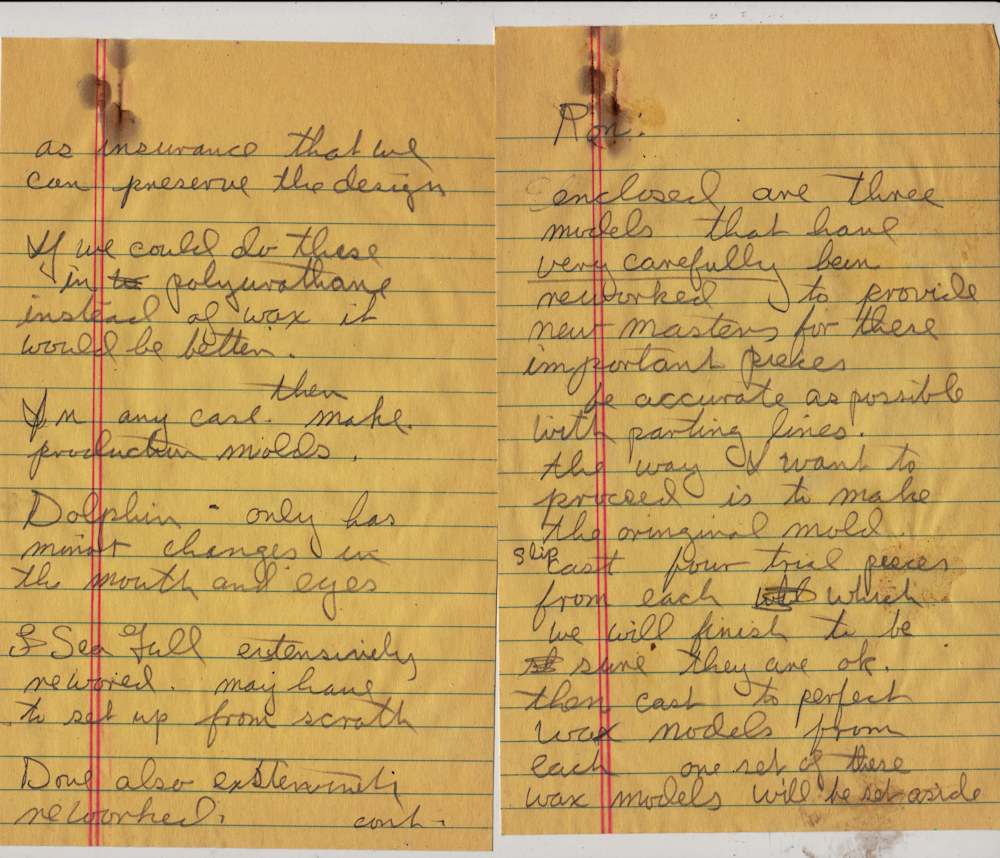 Ron:
enclosed are three
models that have
very carefully been
reworked to provide
new masters for these
important pieces
be accurate as possible
with parting lines.
the way I want to
proceed is to make
the oringinal mold
slip cast four trial pieces
from each which
we will finish to be
sure they are ok.
then cast to perfect
wax models from
each one set of these
wax models will be set aside
as insurance that we
can preserve the design
If we could do these
in polyurothane
instead of wax it
would be better.
then
In any case make
production molds.
Dolphin - only has
minor changes in
the mouth and eyes
Sea Gull extensively
rewored. may have
to set up from scrath
Dove also
reworked. cont.